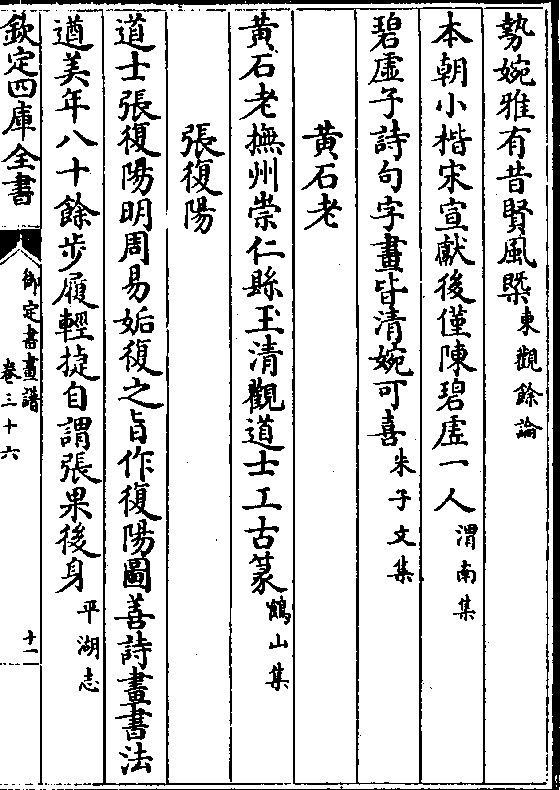 勢婉雅有昔賢風槩東觀餘論
本朝小楷宋宣獻後僅陳碧虛一人渭南集
碧虛子詩句字畫皆清婉可喜朱子文集
黄石老
黄石老撫州崇仁縣玉清觀道士工古篆鶴山集
張復陽
道士張復陽明周易姤復之旨作復陽圖善詩畫書法
遒美年八十餘步履輕捷自謂張果後身平湖志
欽定四庫全書
御定書畫譜
卷三十六
十一